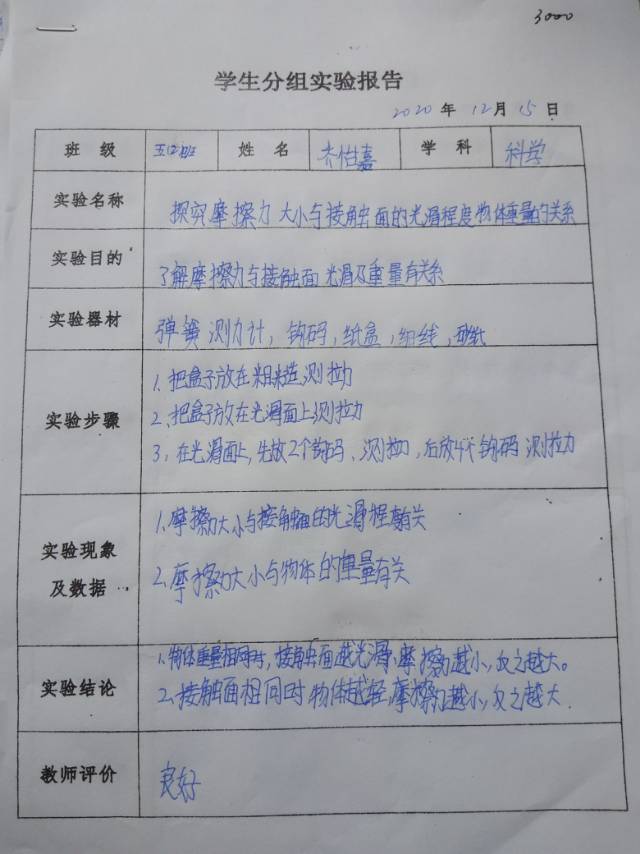 3000
学生分组实验报告
2020 年 12 月 15 日
班 级 五(2)班 姓 名 齐怡嘉 学 科 科学
实验名称 探究摩擦力大小与接触面的光滑程度物体重量的关系
实验目的 了解摩擦力与接触面光滑及重量有关系
实验器材 弹簧测力计，钩码，纸盒，细线，砂纸
实验步骤
1、把盒子放在粗糙测拉力
2、把盒子放在光滑面上测拉力
3、在光滑面上，先放2个钩码、测拉力，后放4个钩码测拉力
实验现象及数据
1.摩擦力大小与接触面的光滑程度有关
2.摩擦力大小与物体的重量有关
实验结论
1.物体重量相同时，接触面越光滑、摩擦力越小，反之越大。
2、接触面相同时物体越轻，摩擦力越小，反之越大
教师评价 良好